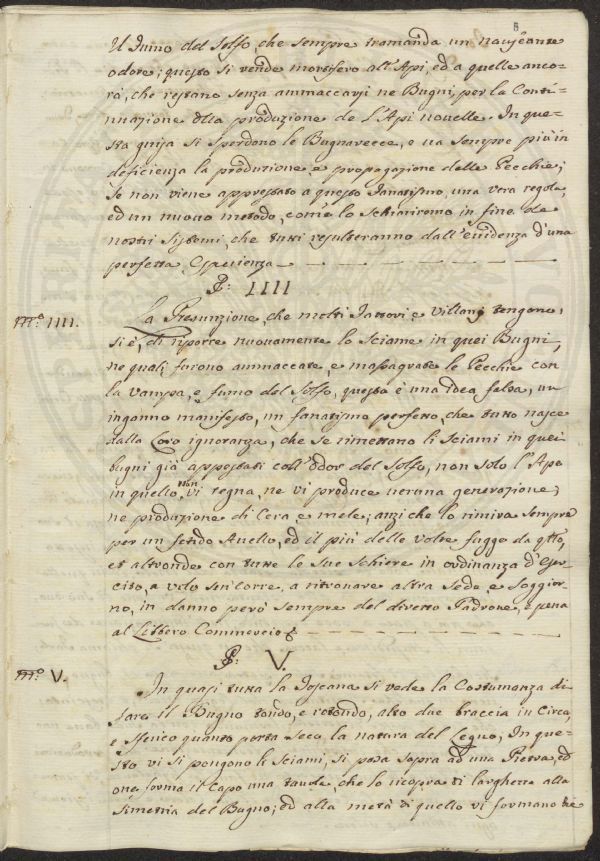 8
Il Fumo del Solfo, che sempre tramanda un nauseante
odore; questo si rende mortifero all'Api, ed a quelle anco-
ra, che restano senza ammaccarsi ne Bugni, per la Conti-
nuazione della produzione de L'Api novelle. In que-
sta guisa si sperdono le Bugnarecce, e va sempre più in
deficienza la produzione e propagazione delle Pecchie;
Se non viene appressato a questo fanatismo, una vera regola,
ed un nuovo metodo, come lo schiariremo in fine de
nostri Sistemi, che tutti resulteranno dall'evidenza d'una
perfetta Esperienza
§: IIII
m:o IIII.
La Presunzione, che molti Fattori, e Villani tengono,
si è, di riporre nuovamente lo Sciame in quei Bugni,
ne quali furono ammaccate, e massagrate le Pecchie con
la vampa, e fumo del Solfo, questa è una idea falsa, un
inganno manifesto, un fanatismo perfetto, che tutto nasce
dalla Loro ignoranza, che se rimettano li Sciami in quei
bugni già appestati coll'Odor del Solfo, non solo l'Ape
in quello non vi regna, ne vi produce neruna generazione;
ne produzione di Cera, e mele; anzi che lo rimira sempre
per un fetido Avello, ed il più delle volte fugge da qtto,
et altronde con tutte le sue schiere in ordinanza d'Eser-
cito, a volo sen corre, a ritrovare altra Sede, e Soggior-
no, in danno però sempre del diretto Padrone, e pena
al Libbero Commercio
§: V.
m:o V.
In quasi tutta la Toscana si vede la Costumanza di
fare il Bugno tondo, e rotondo, alto due braccia in Circa,
e Sferico quanto porta seco la natura del Legno, In que-
sto vi si pongono li Sciami, si posa sopra ad una Pietra, ed
ove forma il Capo una tavola, che lo ricopra di larghezza alla
Simetria del Bugno; ed alla metà di quello vi formano tre